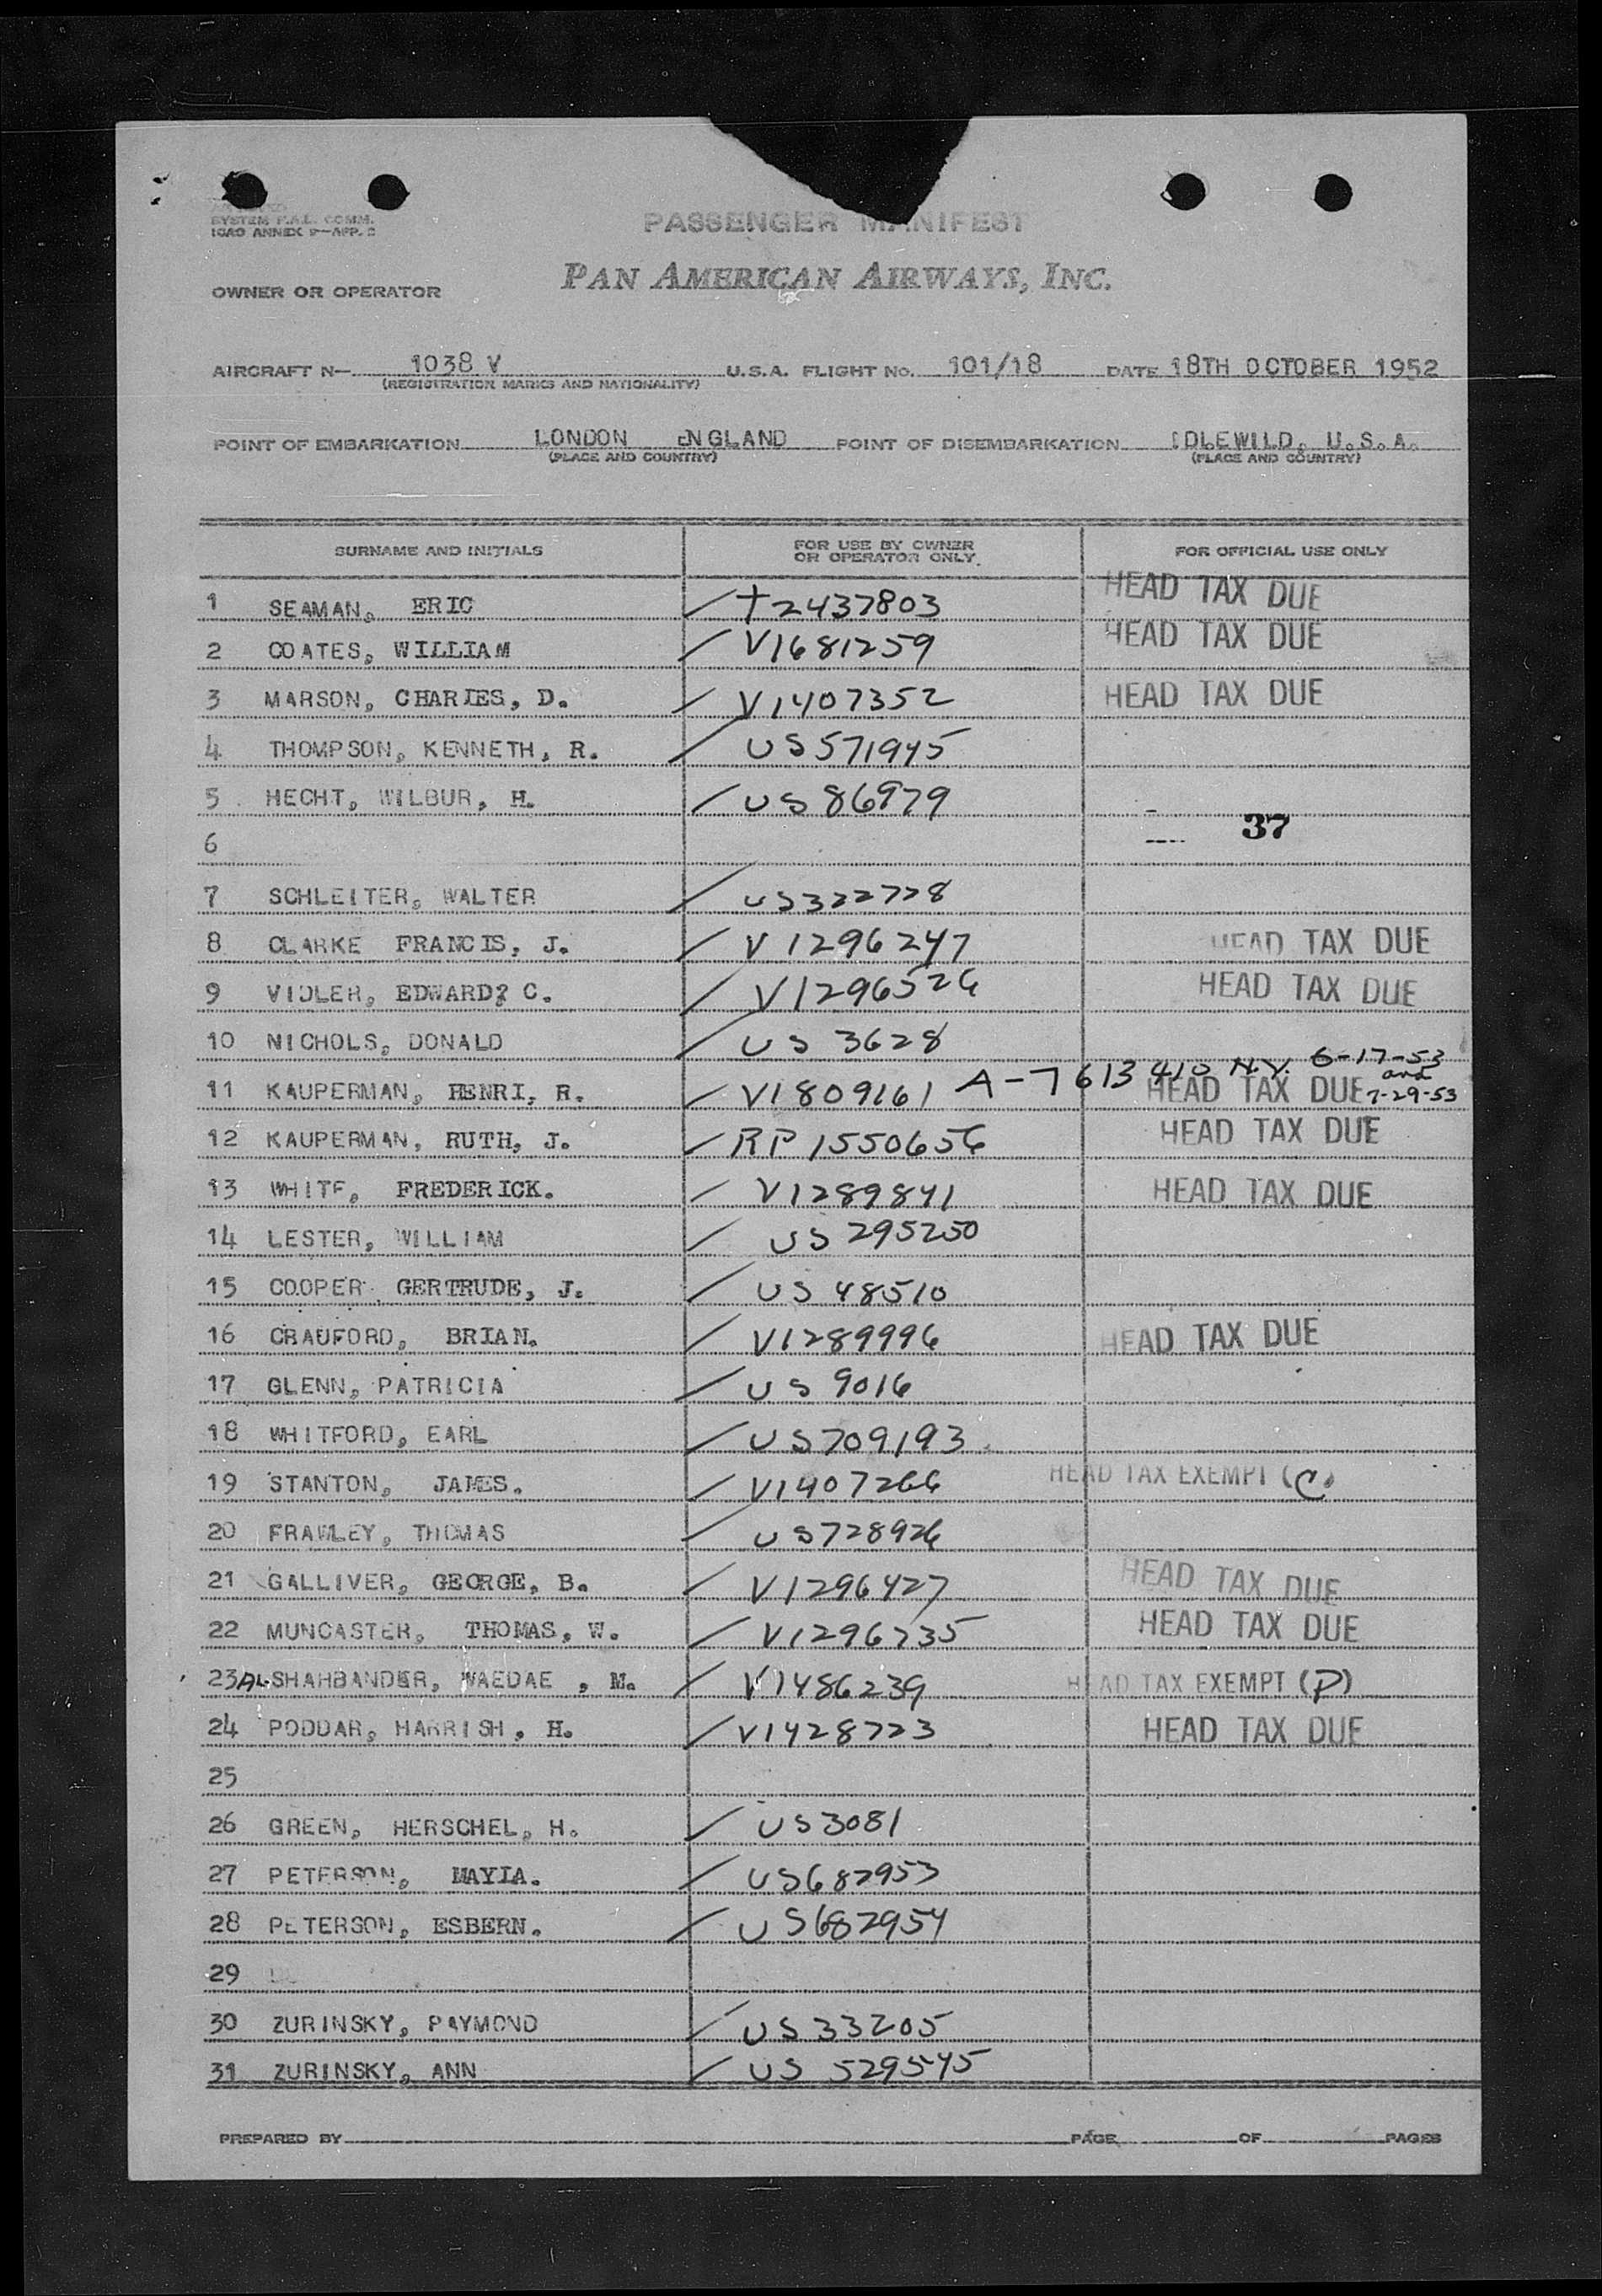 SYSTEM F.A.L. COMM.
ICAO ANNEX 9—APP. 2
PASSENGER MANIFEST
OWNER OR OPERATOR PAN AMERICAN AIRWAYS, INC.
AIRCRAFT N— 1038 V U.S.A. FLIGHT No. 101/18 DATE 18TH OCTOBER 1952
(REGISTRATION MARKS AND NATIONALITY)
POINT OF EMBARKATION LONDON ENGLAND POINT OF DISEMBARKATION IDLEWILD, U.S.A.
(PLACE AND COUNTRY) (PLACE AND COUNTRY)
SURNAME AND INITIALS FOR USE BY OWNER OR OPERATOR ONLY. FOR OFFICIAL USE ONLY
1 SEAMAN, ERIC / T2437803 HEAD TAX DUE
2 COATES, WILLIAM / V1681259 HEAD TAX DUE
3 MARSON, CHARLES, D. / V1407352 HEAD TAX DUE
4 THOMPSON, KENNETH, R. / US571945
5 HECHT, WILBUR, H. / US 86979
6 37
7 SCHLEITER, WALTER / US322728
8 CLARKE FRANCIS, J. / V1296247 HEAD TAX DUE
9 VIDLER, EDWARD? C. / V1296526 HEAD TAX DUE
10 NICHOLS, DONALD / US 3628
11 KAUPERMAN, HENRI, R. / V1809161 A-7613410 N.Y. 6-17-53 and 7-29-53 HEAD TAX DUE
12 KAUPERMAN, RUTH, J. / RP 1550656 HEAD TAX DUE
13 WHITE, FREDERICK. / V1289841 HEAD TAX DUE
14 LESTER, WILLIAM / US 295250
15 COOPER GERTRUDE, J. / US 48510
16 CRAUFORD, BRIAN. / V1289996 HEAD TAX DUE
17 GLENN, PATRICIA / US 9016
18 WHITFORD, EARL / US709193
19 STANTON, JAMES. / V1407266 HEAD TAX EXEMPT (C)
20 FRAWLEY, THOMAS / US728926
21 GALLIVER, GEORGE, B. / V1296427 HEAD TAX DUE
22 MUNCASTER, THOMAS, W. / V1296735 HEAD TAX DUE
23 AL-SHAHBANDER, WAEDAE , M. / V1486239 HEAD TAX EXEMPT (P)
24 PODDAR, HARRISH, H. / V1428723 HEAD TAX DUE
25
26 GREEN, HERSCHEL, H. / US3081
27 PETERSON, MAYIA. / US682953
28 PETERSON, ESBERN. / US682954
29
30 ZURINSKY, RAYMOND / US 33205
31 ZURINSKY, ANN / US 529545
PREPARED BY PAGE OF PAGES